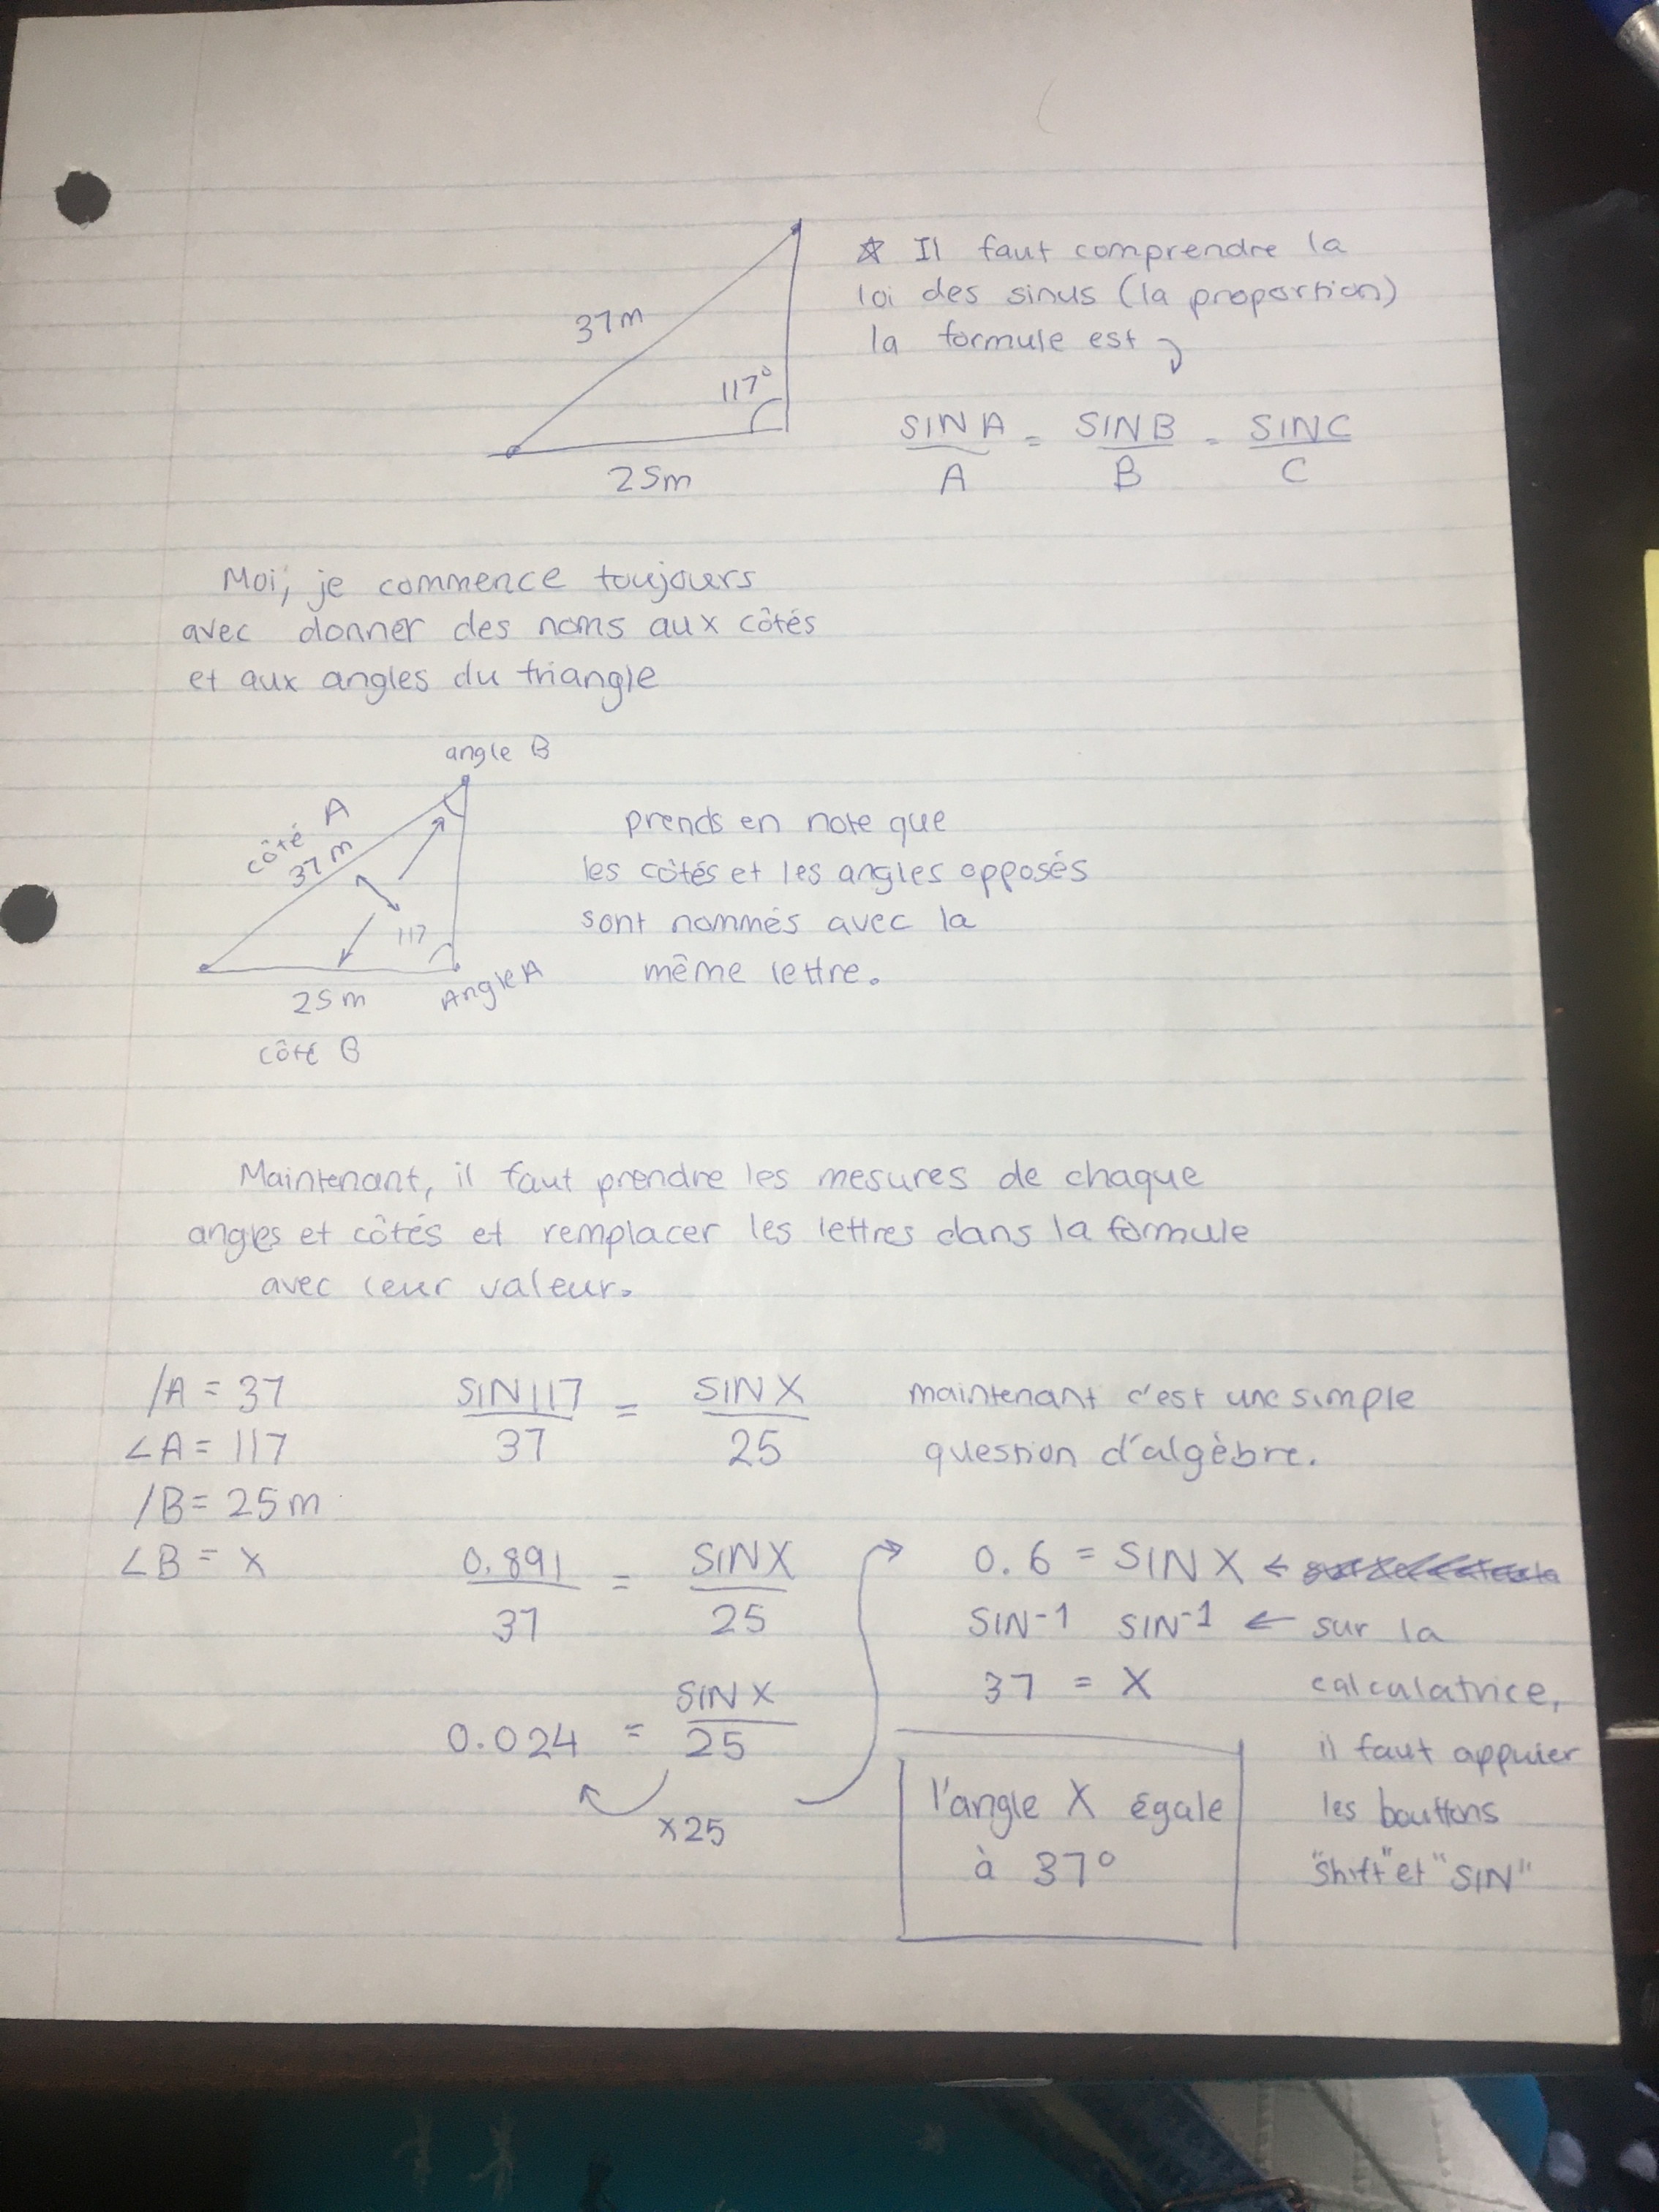 ☆ Il faut comprendre la
loi des sinus (la proportion)
la formule est
37m
117°
25m
SIN A / A = SIN B / B = SIN C / C
Moi, je commence toujours
avec donner des noms aux côtés
et aux angles du triangle
angle B
côté A
37 m
117
Angle A
25 m
côté B
prends en note que
les côtés et les angles opposés
sont nommés avec la
même lettre.
Maintenant, il faut prendre les mesures de chaque
angles et côtés et remplacer les lettres dans la formule
avec leur valeur.
/A = 37
∠A = 117
/B = 25 m
∠B = x
SIN 117 / 37 = SIN X / 25
0.891 / 37 = SIN X / 25
0.024 = SIN X / 25
x25
maintenant c'est une simple
question d'algèbre.
0.6 = SIN X ←
SIN-1 SIN-1 ← sur la
37 = X
calculatrice,
il faut appuier
les bouttons
"shift" et "SIN"
l'angle X égale
à 37°